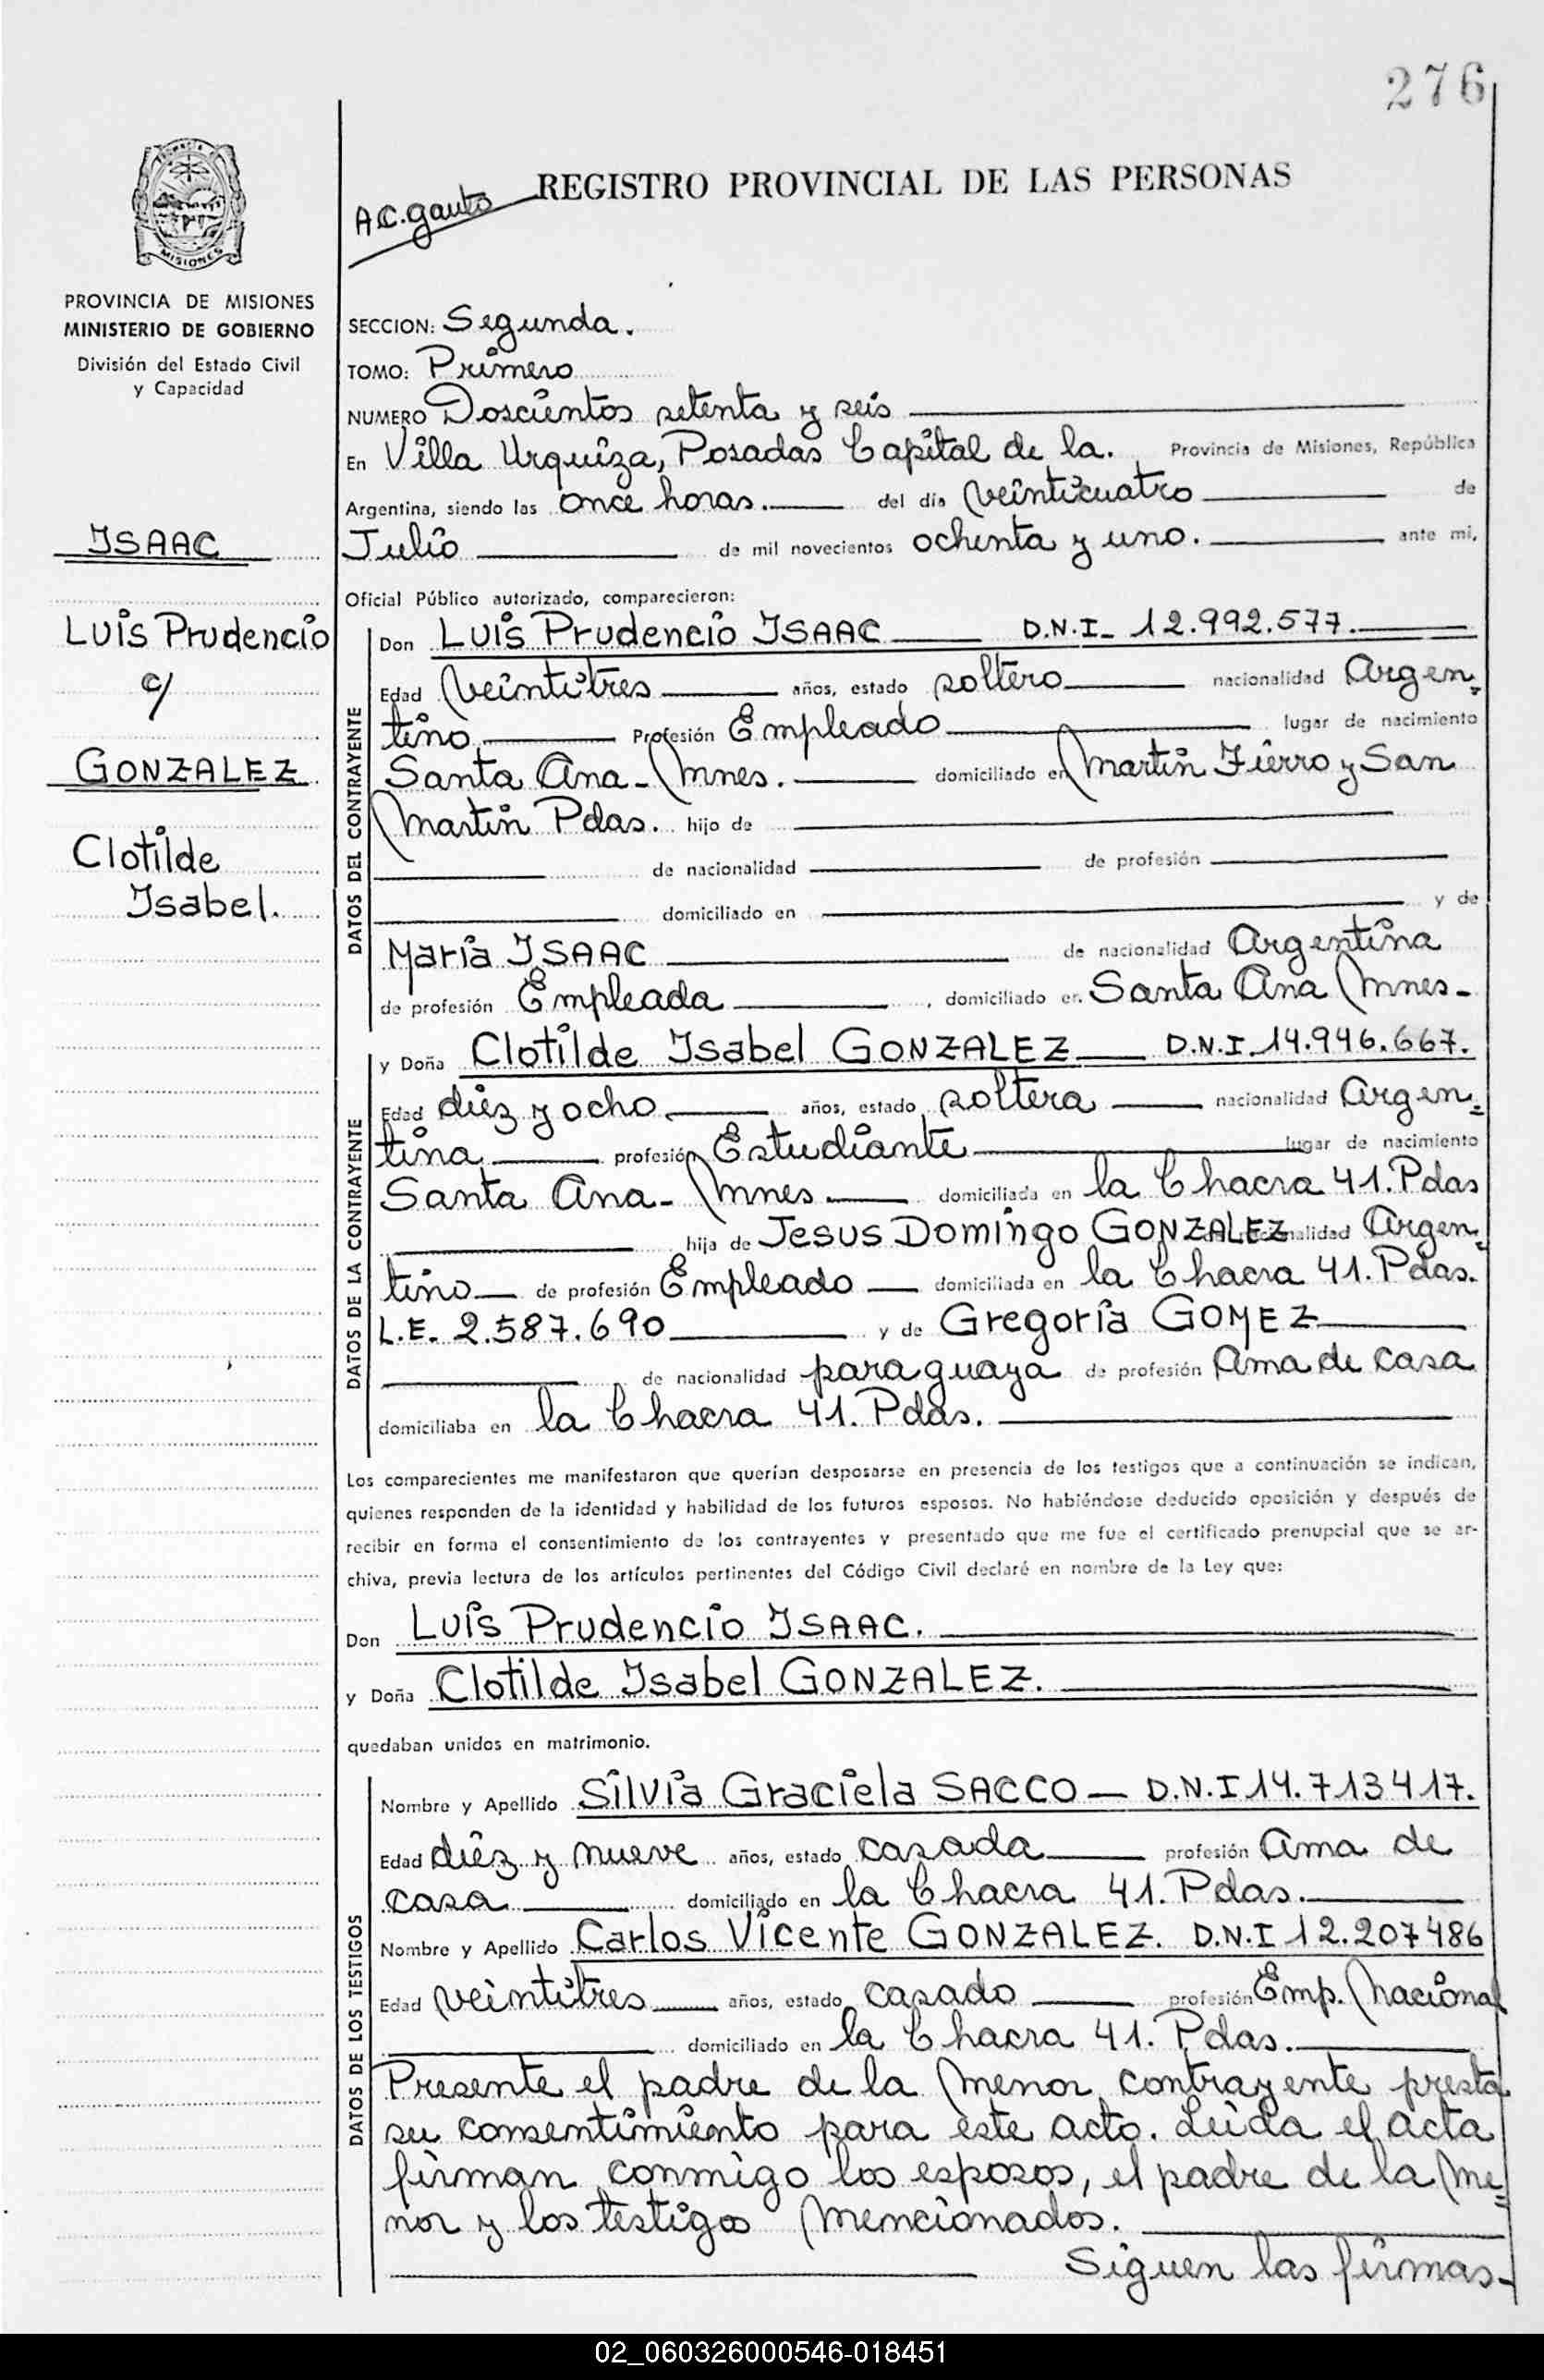 276
REGISTRO PROVINCIAL DE LAS PERSONAS
A.C. Gauto
MISIONES
PROVINCIA DE MISIONES
MINISTERIO DE GOBIERNO
División del Estado Civil
y Capacidad
ISAAC
Luis Prudencio
c/
GONZALEZ
Clotilde
Isabel.
SECCION: Segunda.
TOMO: Primero
NUMERO Doscientos setenta y seis
En Villa Urquiza, Posadas Capital de la. Provincia de Misiones, República
Argentina, siendo las once horas. del día veinticuatro de
Julio de mil novecientos ochenta y uno. ante mi,
Oficial Público autorizado, comparecieron:
DATOS DEL CONTRAYENTE
Don Luis Prudencio ISAAC D.N.I- 12.992.577.
Edad veintitres años, estado soltero nacionalidad Argen-
tino Profesión Empleado lugar de nacimiento
Santa Ana - Mnes. domiciliado en Martin Fierro y San
Martin Pdas. hijo de
de nacionalidad de profesión
domiciliado en y de
María ISAAC de nacionalidad Argentina
de profesión Empleada, domiciliado en Santa Ana Mnes-
DATOS DE LA CONTRAYENTE
y Doña Clotilde Isabel GONZALEZ D.N.I 14.946.667.
Edad diez y ocho años, estado soltera nacionalidad Argen=
tina profesión Estudiante lugar de nacimiento
Santa Ana- Mnes domiciliada en la Chacra 41. Pdas
hija de Jesus Domingo GONZALEZ nacionalidad Argen=
tino de profesión Empleado domiciliada en la Chacra 41. Pdas.
L.E. 2.587.690 y de Gregoría GOMEZ
de nacionalidad paraguaya de profesión Ama de casa
domiciliaba en la Chacra 41. Pdas.
Los comparecientes me manifestaron que querían desposarse en presencia de los testigos que a continuación se indican,
quienes responden de la identidad y habilidad de los futuros esposos. No habiéndose deducido oposición y después de
recibir en forma el consentimiento de los contrayentes y presentado que me fue el certificado prenupcial que se ar-
chiva, previa lectura de los artículos pertinentes del Código Civil declaré en nombre de la Ley que:
Don Luis Prudencio ISAAC.
y Doña Clotilde Isabel GONZALEZ.
quedaban unidos en matrimonio.
DATOS DE LOS TESTIGOS
Nombre y Apellido Silvia Graciela SACCO - D.N.I 14.713417.
Edad diez y nueve años, estado casada profesión Ama de
casa domiciliado en la Chacra 41. Pdas.
Nombre y Apellido Carlos Vicente GONZALEZ. D.N.I 12.207486
Edad veintitres años, estado casado profesión Emp. Nacional
domiciliado en la Chacra 41. Pdas.
Presente el padre de la menor contrayente presta
su consentimiento para este acto. Leida el acta
firman conmigo los esposos, el padre de la me=
nor y los testigos mencionados.
Siguen las firmas-
02_060326000546-018451